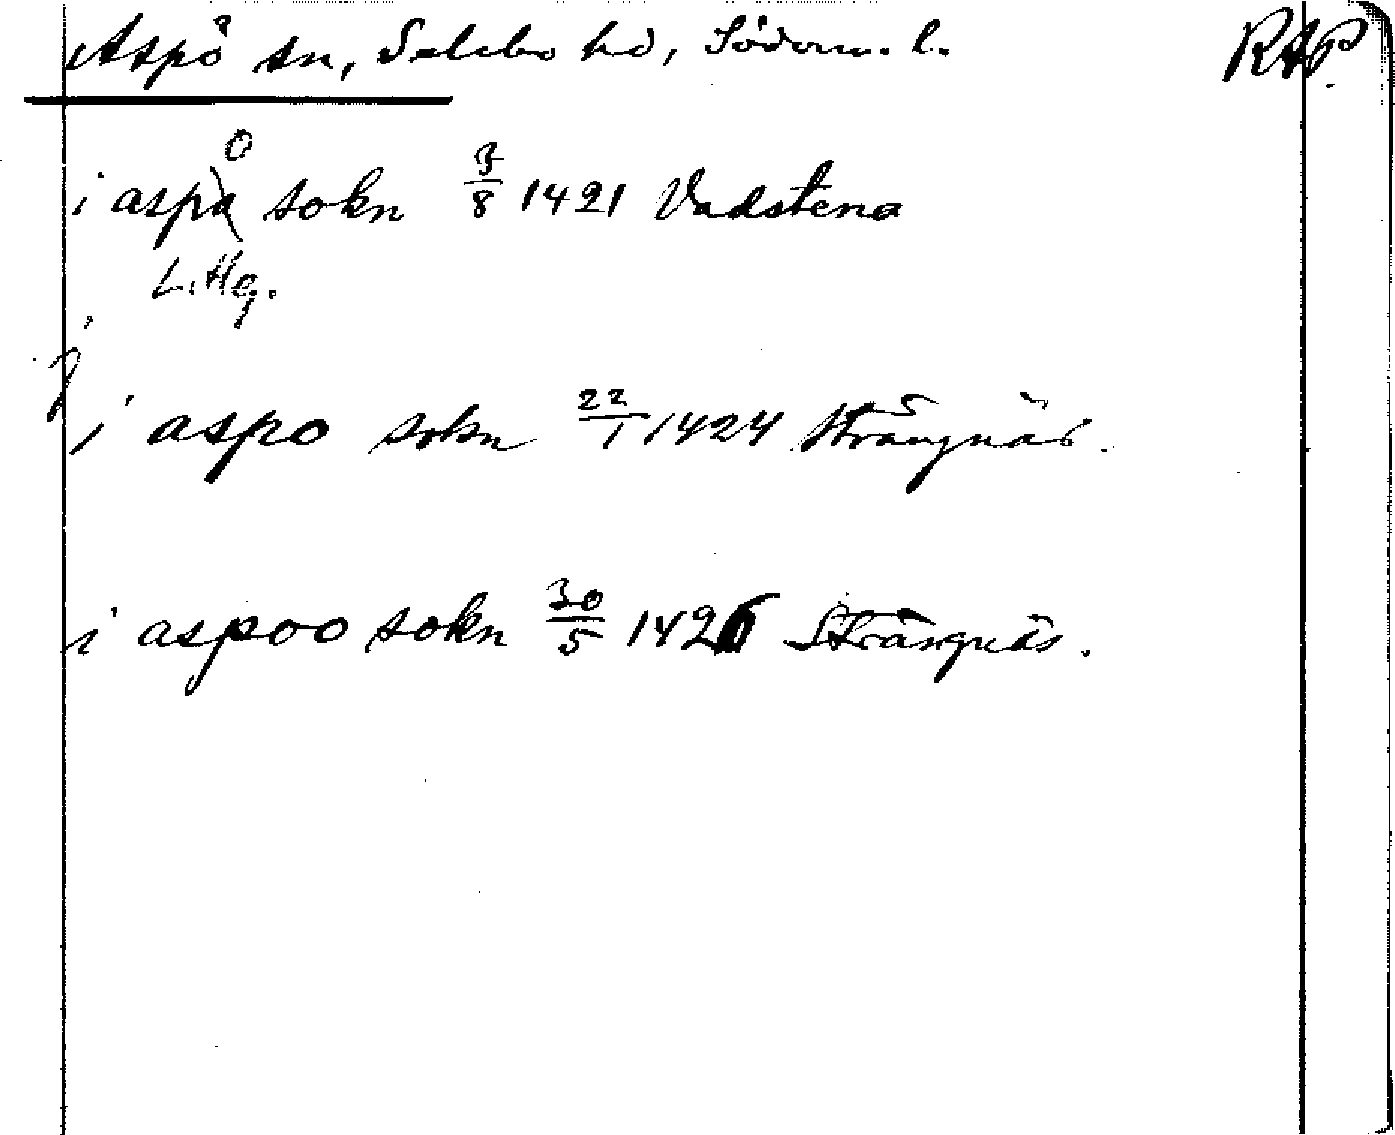 Aspö sn, Selebo hd, Söderm. l. RAP.
o
i aspa sokn 3/8 1421 Vadstena
L. Hg.
j
i aspo sokn 22/1 1424 Strängnäs.
i aspoo sokn 30/5 1426 Strängnäs.